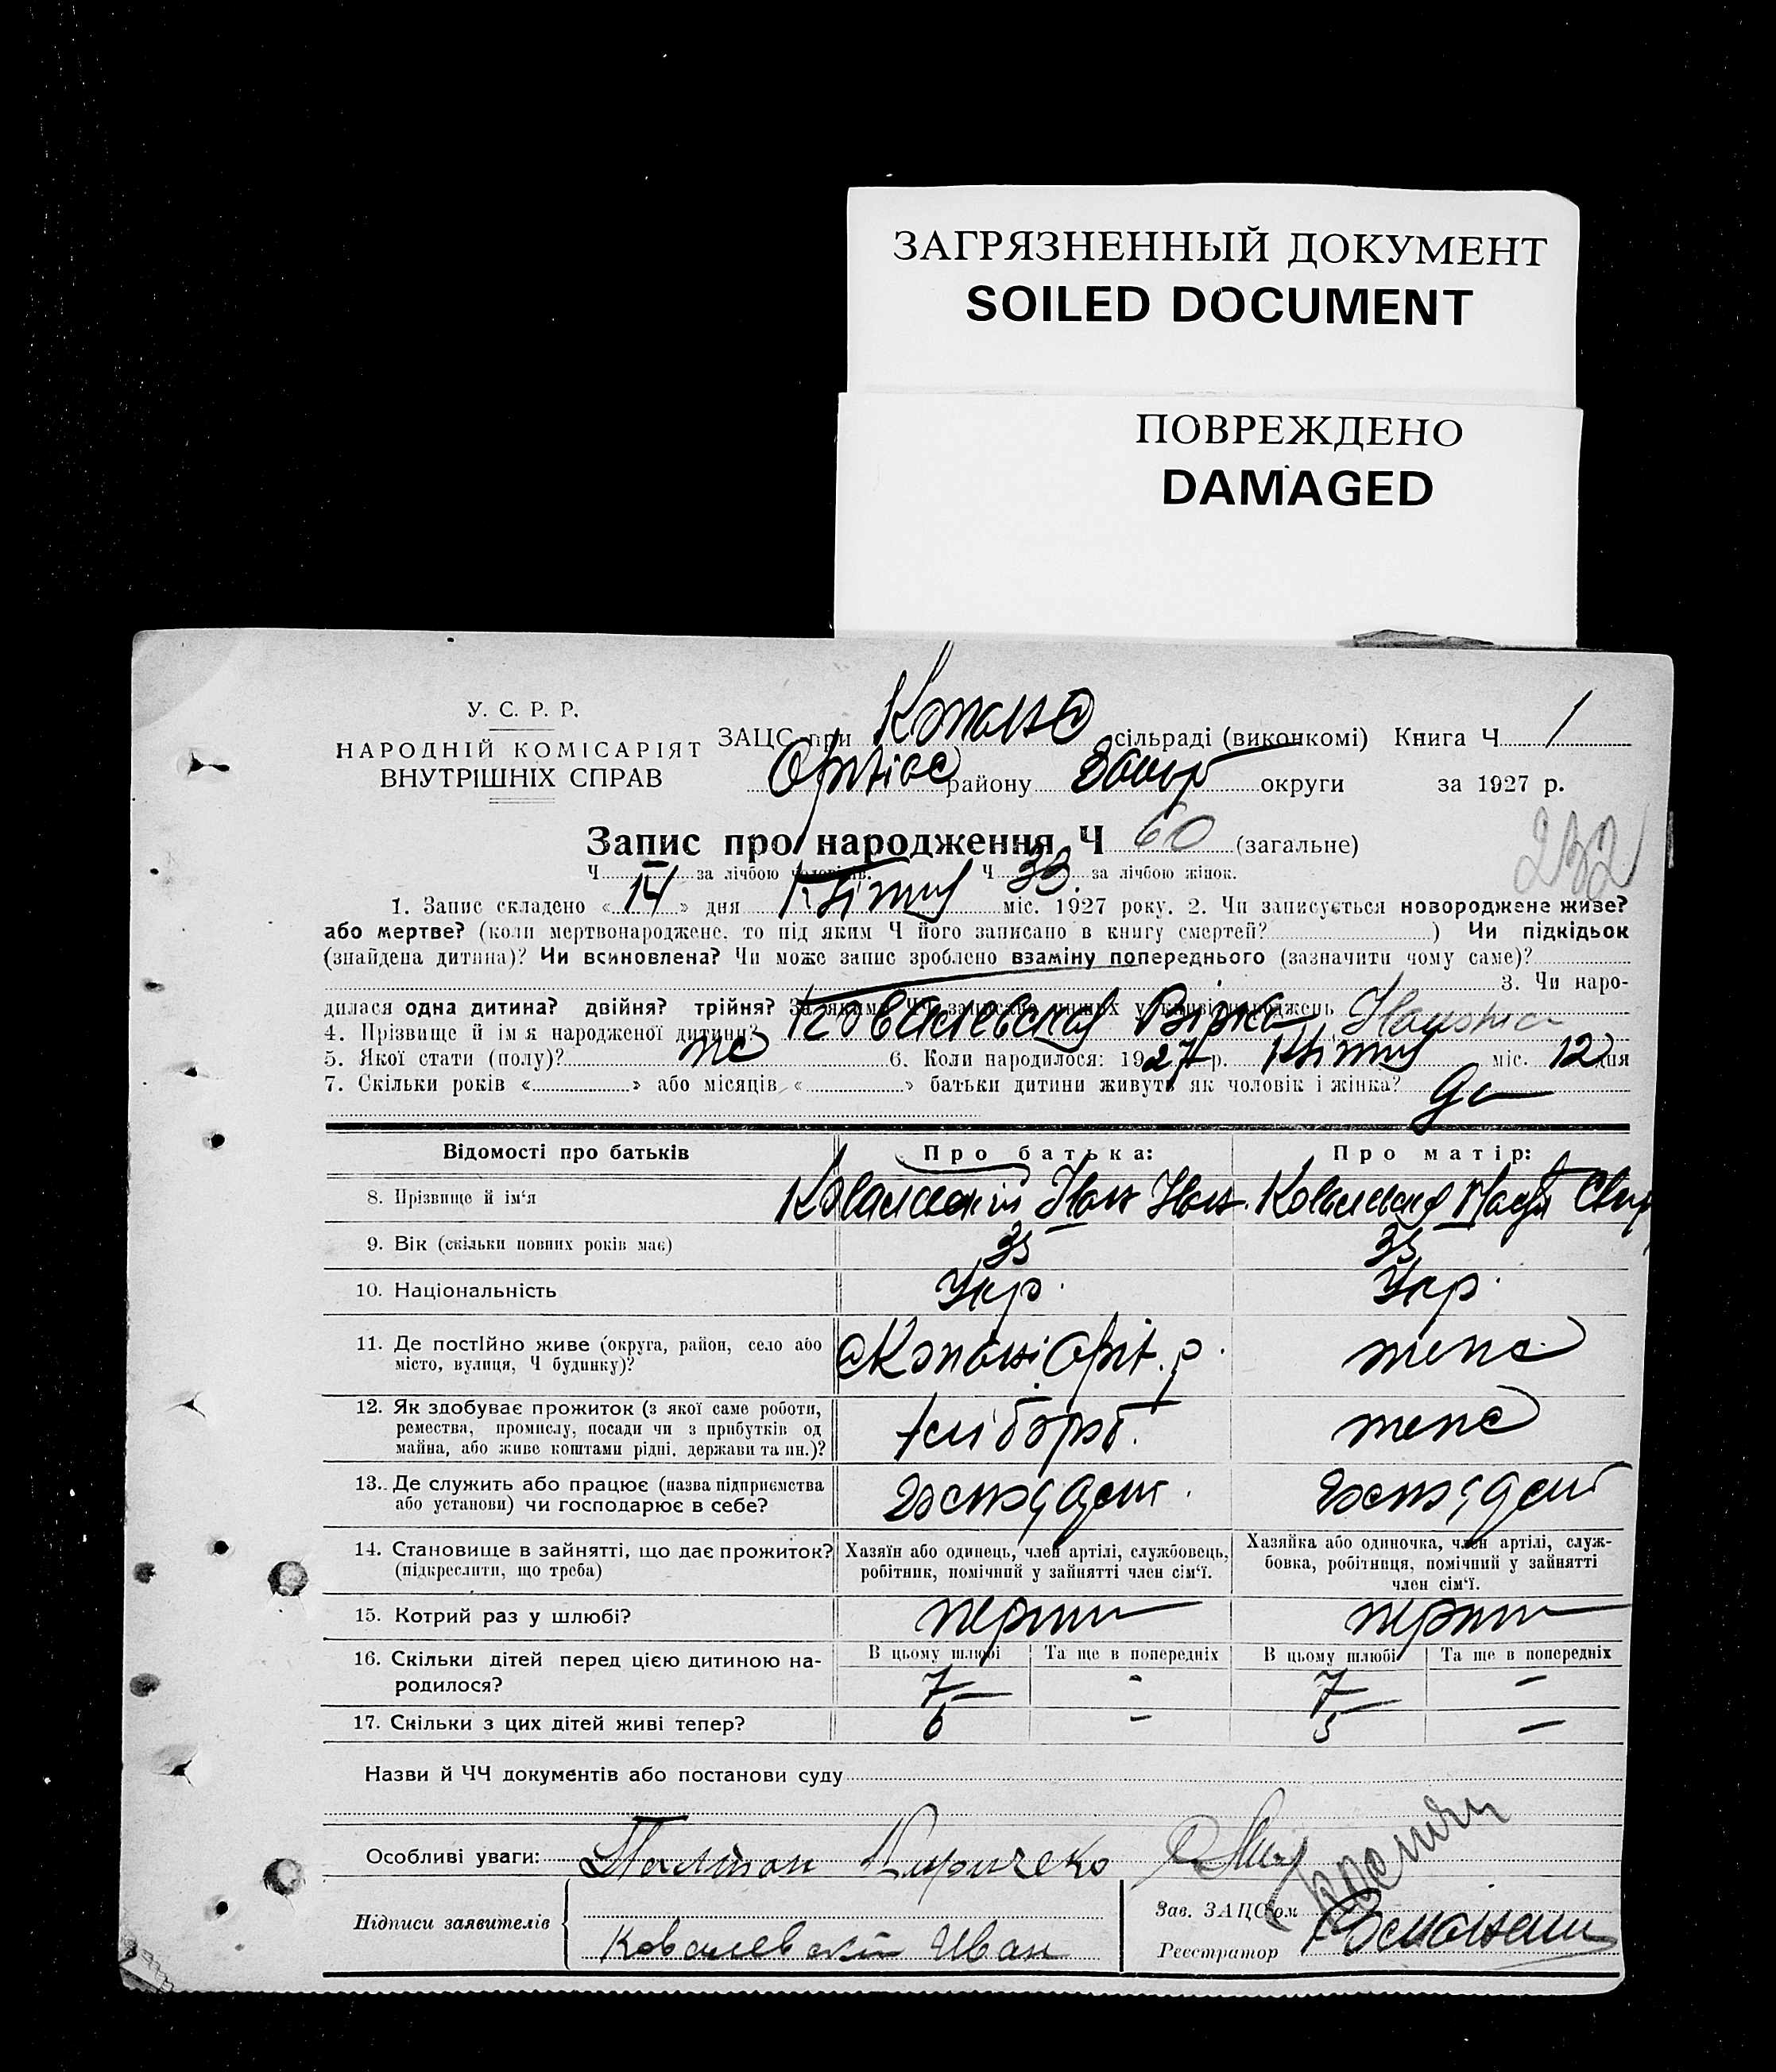 ЗАГРЯЗНЕННЫЙ ДОКУМЕНТ
SOILED DOCUMENT
ПОВРЕЖДЕНО
DAMAGED
У. С. Р. Р.
НАРОДНІЙ КОМІСАРІЯТ
ВНУТРІШНІХ СПРАВ
ЗАЦС при сільраді (виконкомі) Книга Ч 1
району округи за 1927 р.
Запис про народження Ч 60 (загальне)
232
Ч — за лічбою чоловіків. Ч 33. за лічбою жінок.
1. Запис складено «14» дня Квітня міс. 1927 року. 2. Чи записується новороджене живе?
або мертве? (коли мертвонароджене, то під яким Ч його записано в книгу смертей? ) Чи підкідьок
(знайдена дитина)? Чи всиновлена? Чи може запис зроблено взаміну попереднього (зазначити чому саме)?
3. Чи наро-
дилася одна дитина? двійня? трійня? За якими ЧЧ записано инших у книзі народжень
4. Прізвище й ім я народженої дитини? Ковалевская Вірка Ивановна
5. Якої стати (полу)? же 6. Коли народилося: 1927 р. Квітня міс. 12 дня
7. Скільки років « » або місяців « » батьки дитини живуть як чоловік і жінка? Да
Відомості про батьків Про батька: Про матір:
8. Прізвище й ім‘я Ковалевский Іван Іван. Ковалевская
9. Вік (скільки повних років має) 35 35
10. Національність Укр. Укр.
11. Де постійно живе (округа, район, село або
місто, вулиця, Ч будинку)? с Копані Оріх. р. теж
12. Як здобуває прожиток (з якої саме роботи,
ремества, промислу, посади чи з прибутків од
майна, або живе коштами рідні, держави та ин.)? хлібороб. теж
13. Де служить або працює (назва підприємства
або установи) чи господарює в себе?
14. Становище в зайнятті, що дає прожиток?
(підкреслити, що треба)
Хазяїн або одинець, член артілі, службовець,
робітник, помічний у зайнятті член сім‘ї.
Хазяйка або одиночка, член артілі, служ-
бовка, робітниця, помічний у зайнятті
член сім‘ї.
15. Котрий раз у шлюбі? перший перший
16. Скільки дітей перед цією дитиною на-
родилося?
В цьому шлюбі Та ще в попередніх В цьому шлюбі Та ще в попередніх
7 - 7 -
17. Скільки з цих дітей живі тепер? - 5 -
Назви й ЧЧ документів або постанови суду
Особливі уваги:
Підписи заявителів
Ковалевский Иван
Зав. ЗАЦС‘ом
Реєстратор